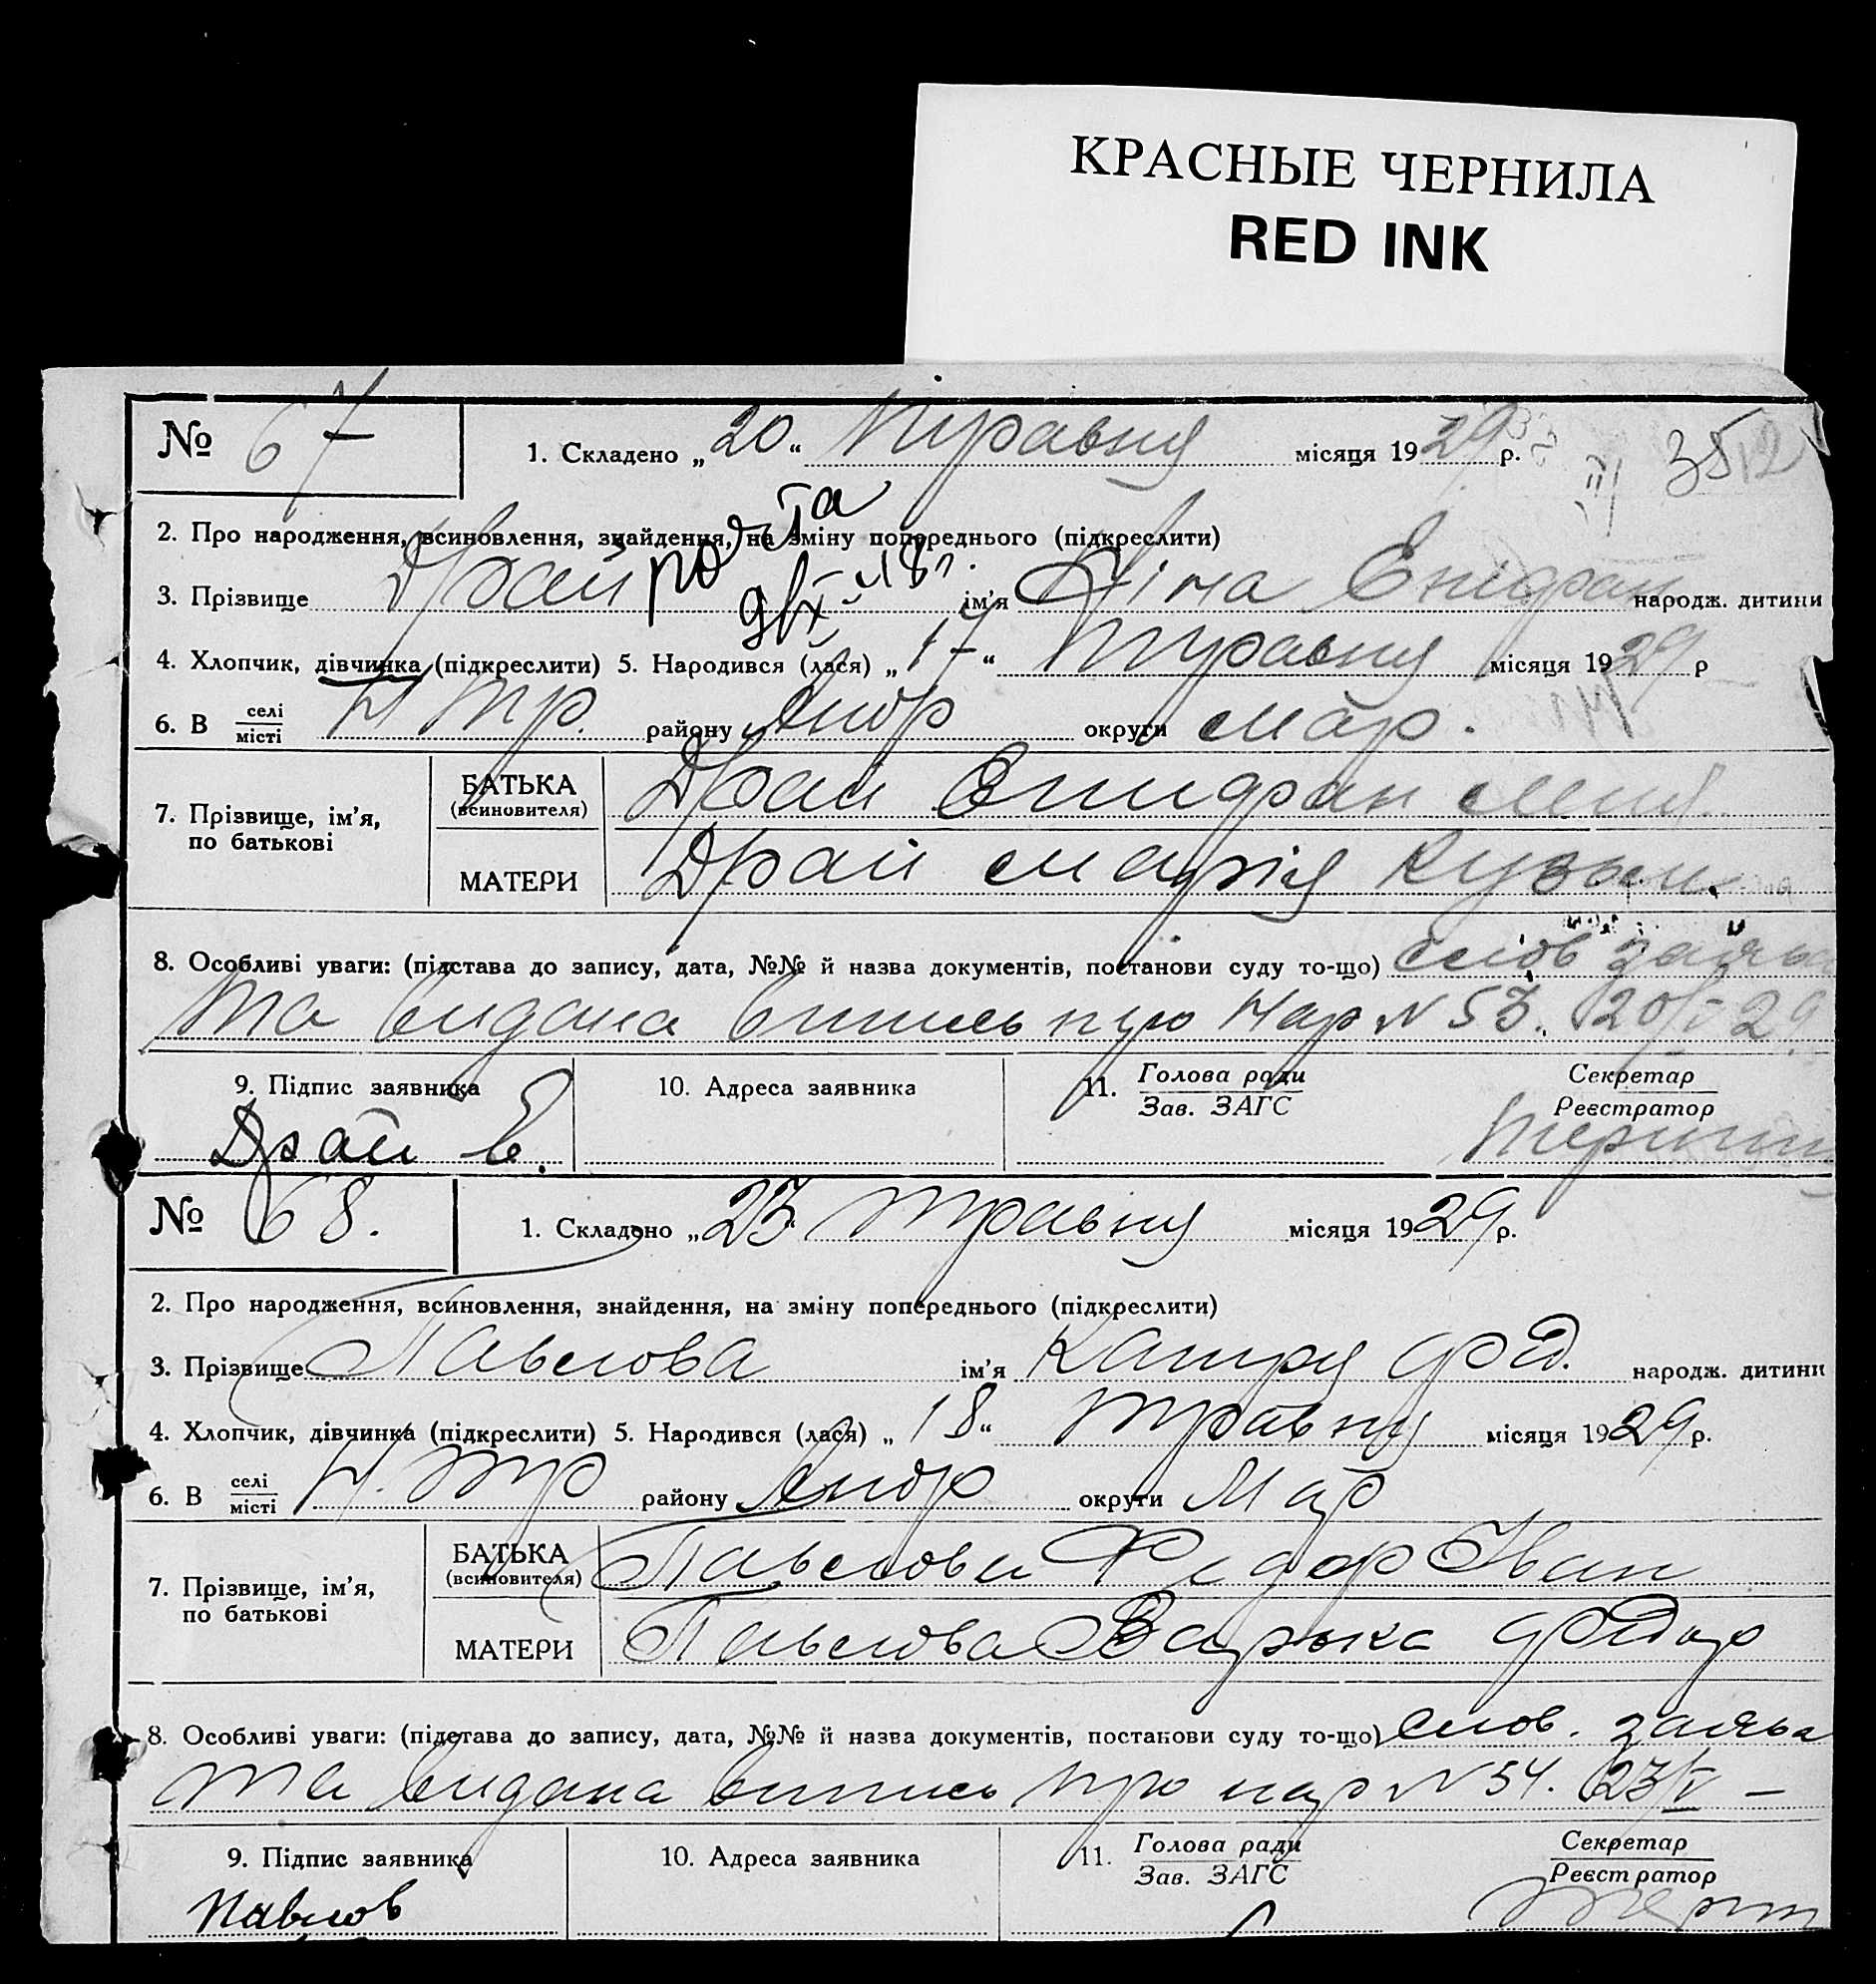 КРАСНЫЕ ЧЕРНИЛА
RED INK
№ 67
1. Складено „20“ Травня місяця 1929 р.
2. Про народження, всиновлення, знайдення, на зміну попереднього (підкреслити)
3. Прізвище Драй ім'я Ніна народж. дитини
4. Хлопчик, дівчинка (підкреслити) 5. Народився (лася) „17“ Травня місяця 1929 р
6. В селі/місті Н Тр. району Янор округи Мар.
7. Прізвище, ім'я, по батькові
БАТЬКА (всиновителя) Драй
МАТЕРИ Драй Марія Кузьм.
8. Особливі уваги: (підстава до запису, дата, №№ й назва документів, постанови суду то-що) слов заява
та видана випись про нар N 53. 20/V 29
9. Підпис заявника
10. Адреса заявника
11. Голова ради/Зав. ЗАГС
Секретар/Реєстратор
Драй Е.
№ 68.
1. Складено „23 травня місяця 1929 р.
2. Про народження, всиновлення, знайдення, на зміну попереднього (підкреслити)
3. Прізвище Павлова ім'я Катря Фед. народж. дитини
4. Хлопчик, дівчинка (підкреслити) 5. Народився (лася) „18“ травня місяця 1929 р.
6. В селі/місті Н. Тр району Янор округи Мар
7. Прізвище, ім'я, по батькові
БАТЬКА (всиновителя) Федор Иван
МАТЕРИ Павлова Варька Федор
8. Особливі уваги: (підстава до запису, дата, №№ й назва документів, постанови суду то-що) слов. заява
та видана випись про нар N 54. 23/V –
9. Підпис заявника
10. Адреса заявника
11. Голова ради/Зав. ЗАГС
Секретар/Реєстратор
Павлов